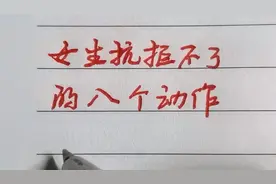 女生抗拒不了
的八个动作